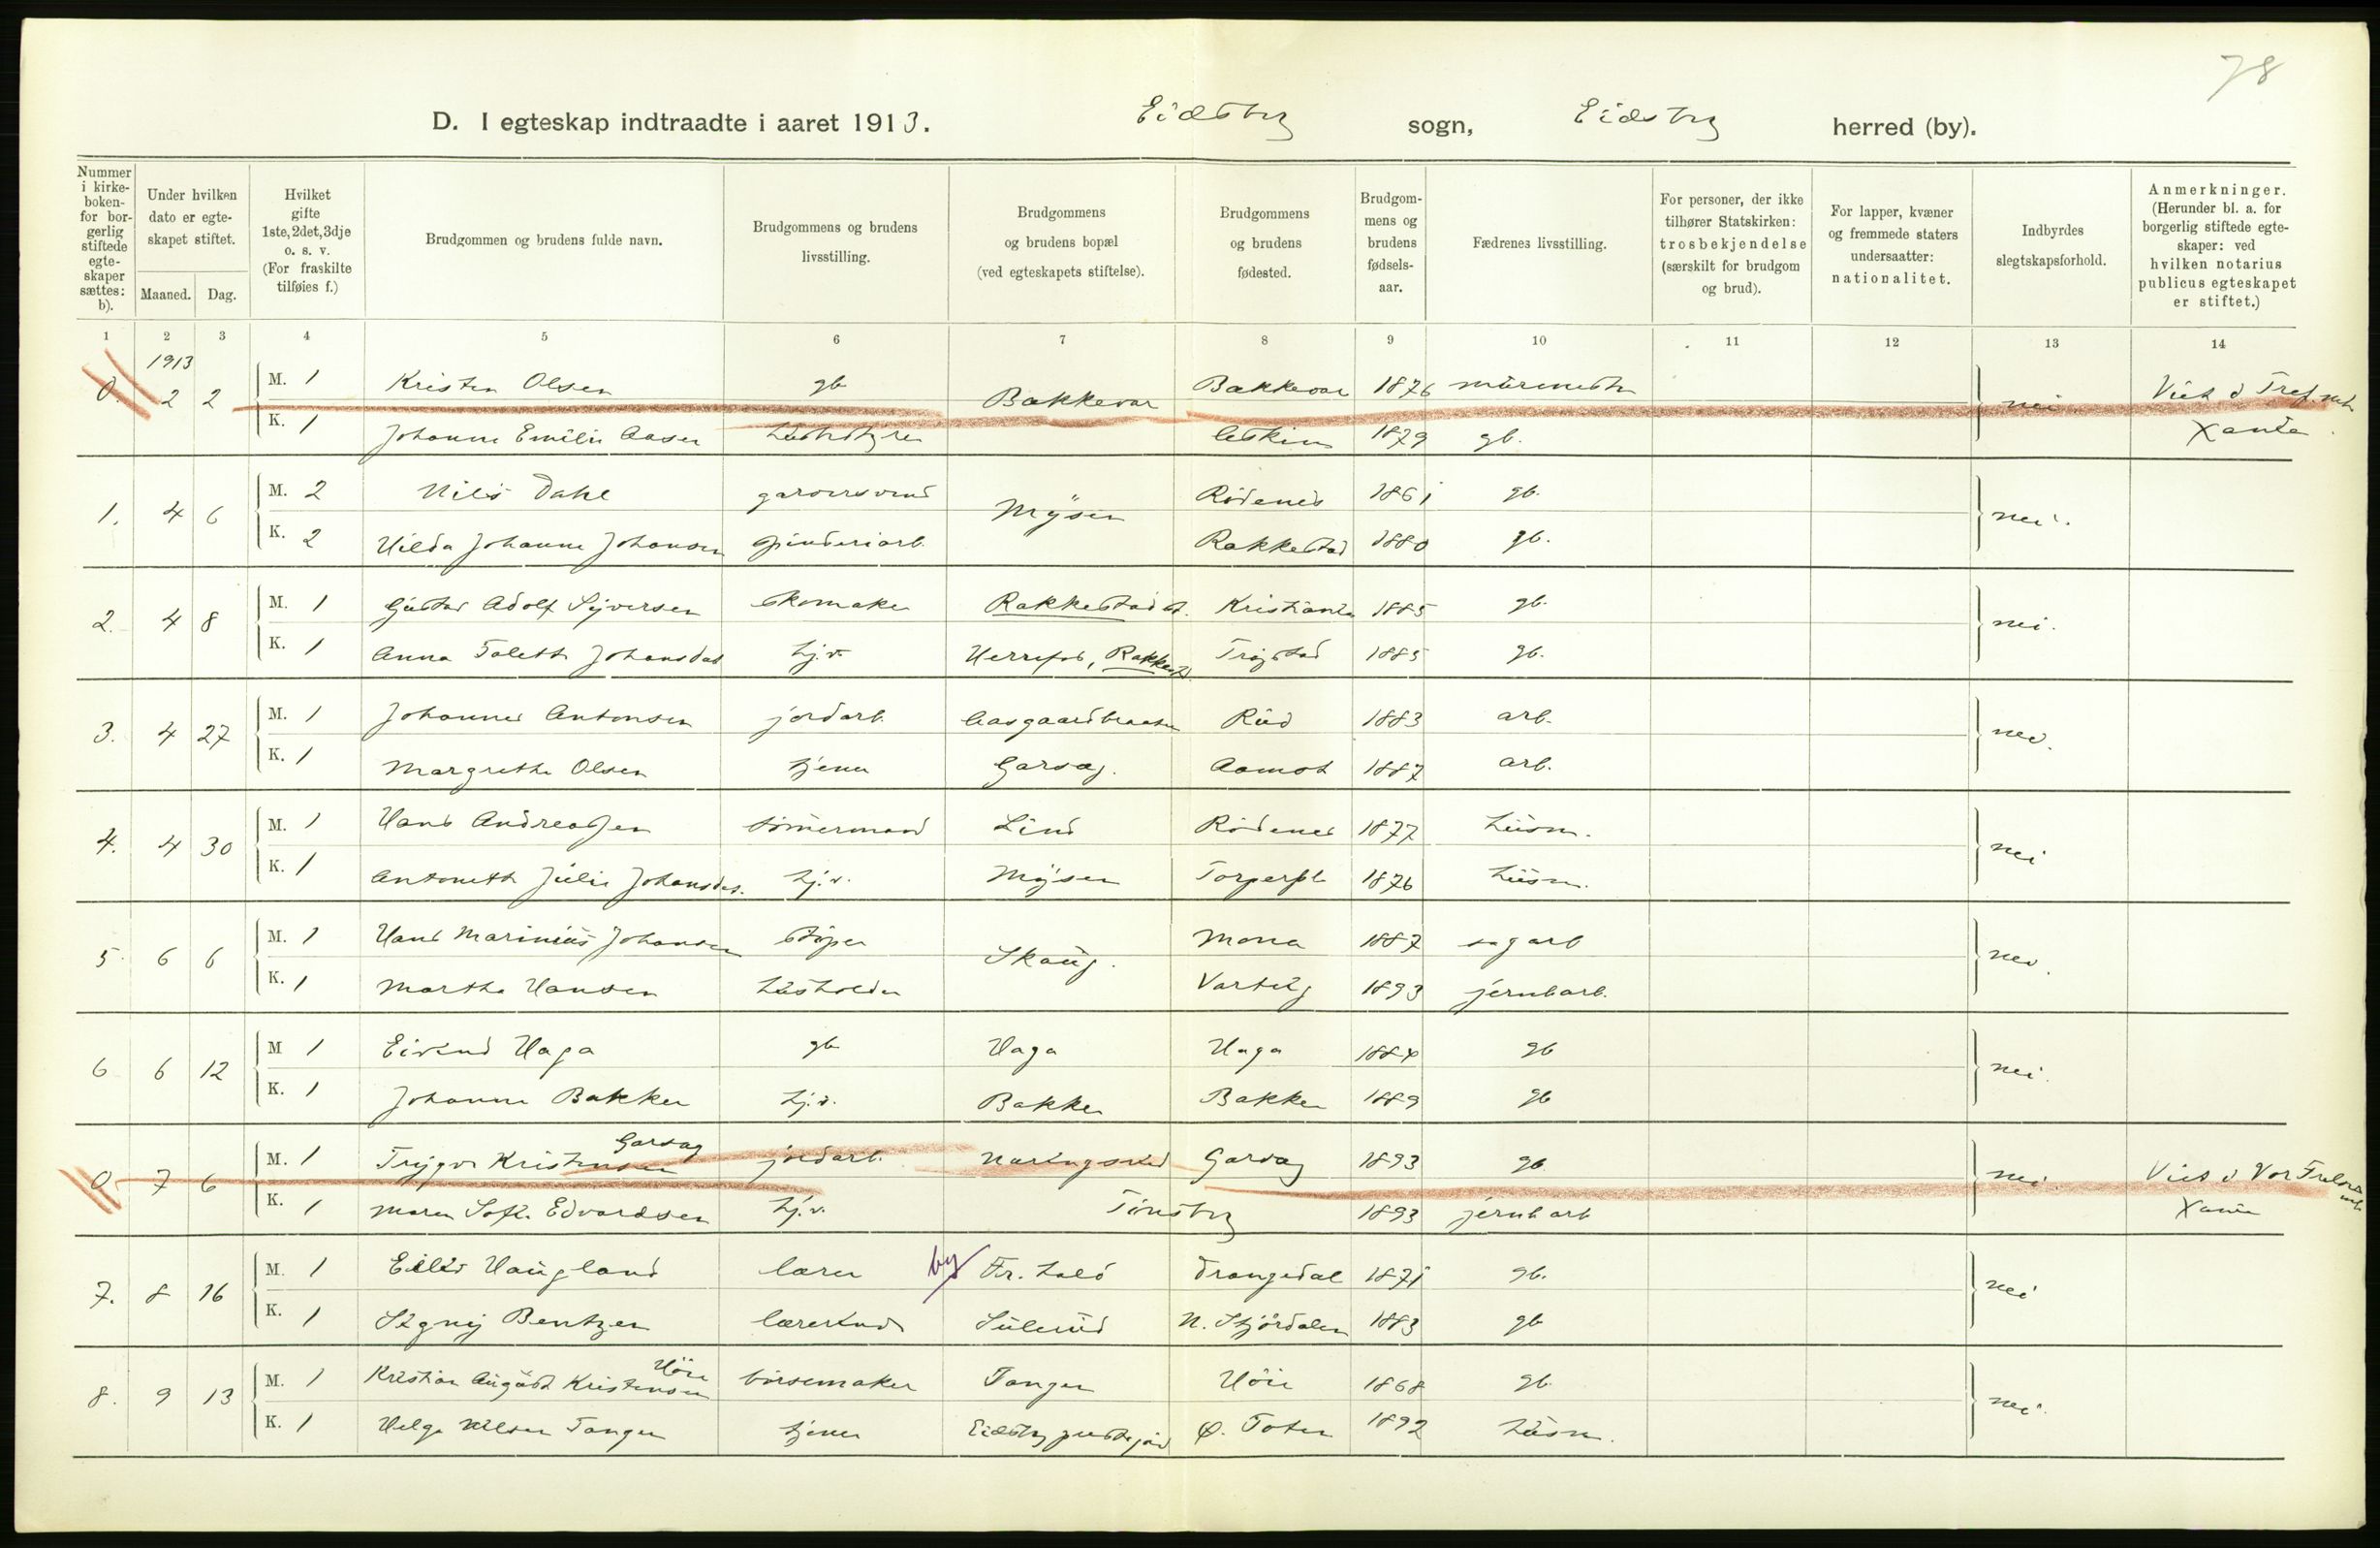 78
D. I egteskap indtraadte i aaret 1913. Eidsberg sogn, Eidsberg herred (by).
Nummer i kirke- boken- for bor- gerlig stiftede egte- skaper sættes: b).
Under hvilken dato er egte- skapet stiftet.
Maaned. Dag.
Hvilket gifte 1ste, 2det, 3dje o. s. v. (For fraskilte tilføies f.)
Brudgommen og brudens fulde navn.
Brudgommens og brudens livsstilling.
Brudgommens og brudens bopæl (ved egteskapets stiftelse).
Brudgommens og brudens fødested.
Brudgom- mens og brudens fødsels- aar.
Fædrenes livsstilling.
For personer, der ikke tilhører Statskirken: trosbekjendelse (særskilt for brudgom og brud).
For lapper, kvæner og fremmede staters undersaatter: nationalitet.
Indbyrdes slegtskapsforhold.
Anmerkninger. (Herunder bl. a. for borgerlig stiftede egte- skaper: ved hvilken notarius publicus egteskapet er stiftet.)
1 2 3 4 5 6 7 8 9 10 11 12 13 14
1913
0. 2 2 M. 1 Kristen Olsen gb Bakkevar Bakkevar 1876 murmester nei Viet i Tref. mh
K. 1 Johanne Emilie Aasen husbestyrer Askim 1879 gb. Xania
1. 4 6 M. 2 Nils Dahl garversvend Mysen Rödenes 1861 gb. nei.
K. 2 Hilda Johanne Johansen spinderiarb. Rakkestad 1880 gb.
2. 4 8 M. 1 Gustav Adolf Syversen skomaker Rakkestad st. Kristiania 1885 gb. nei.
K. 1 Anna Talette Johansdat hj.v. Herrefos, Rakkest. Trøgstad 1885 gb.
3. 4 27 M. 1 Johannes Antonsen jordarb. Aasgaardbraaten Rud 1883 arb. nei.
K. 1 Margrethe Olsen tjener Garseg. Aamot 1887 arb.
4. 4 30 M. 1 Hans Andreassen tömmermand Lund Rödenes 1877 husm. nei
K. 1 Antonette Julie Johansdat. hj.v. Mysen Torperpl. 1876 husm.
5 6 6 M. 1 Hans Marinius Johansen støper Skaug. Mona 1887 sagarb nei.
K. 1 Marthe Hansen husholder Varteig 1893 jernbarb.
6 6 12 M 1 Eivind Haga gb Haga Haga 1884 gb nei.
K. 1 Johanne Bakken hj.v. Bakken Bakken 1889 gb
0 7 6 M. 1 Trygve Kristensen Garseg jordarb. Garseg 1893 gb nei. Viet i Vor Frelsers mh
K. 1 Maren Sofie Edvardsen hj.v. Tönsberg 1893 jernbarb Xania
7. 8 16 M. 1 Eilev Haugland lærer by Fr.hald Drangedal 1871 gb. nei
K. 1 Signy Bentzen lærerinde Sulerud N. Stjördalen 1883 gb
8. 9 13 M. 1 Kristian August Kristensen Höie børsemaker Tangen Höie 1868 gb. nei.
K. 1 Helga Nilsen Tangen tjener Eidsberg prestegård Ø. Toten 1892 husm.